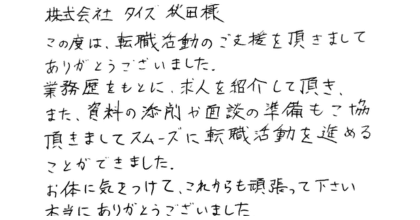 株式会社 タイズ 秋田様
この度は、転職活動のご支援を頂きまして
ありがとうございました。
業務歴をもとに、求人を紹介して頂き、
また、資料の添削や面談の準備もご協
頂きましてスムーズに転職活動を進める
ことができました。
お体に気をつけて、これからも頑張って下さい
本当にありがとうございました